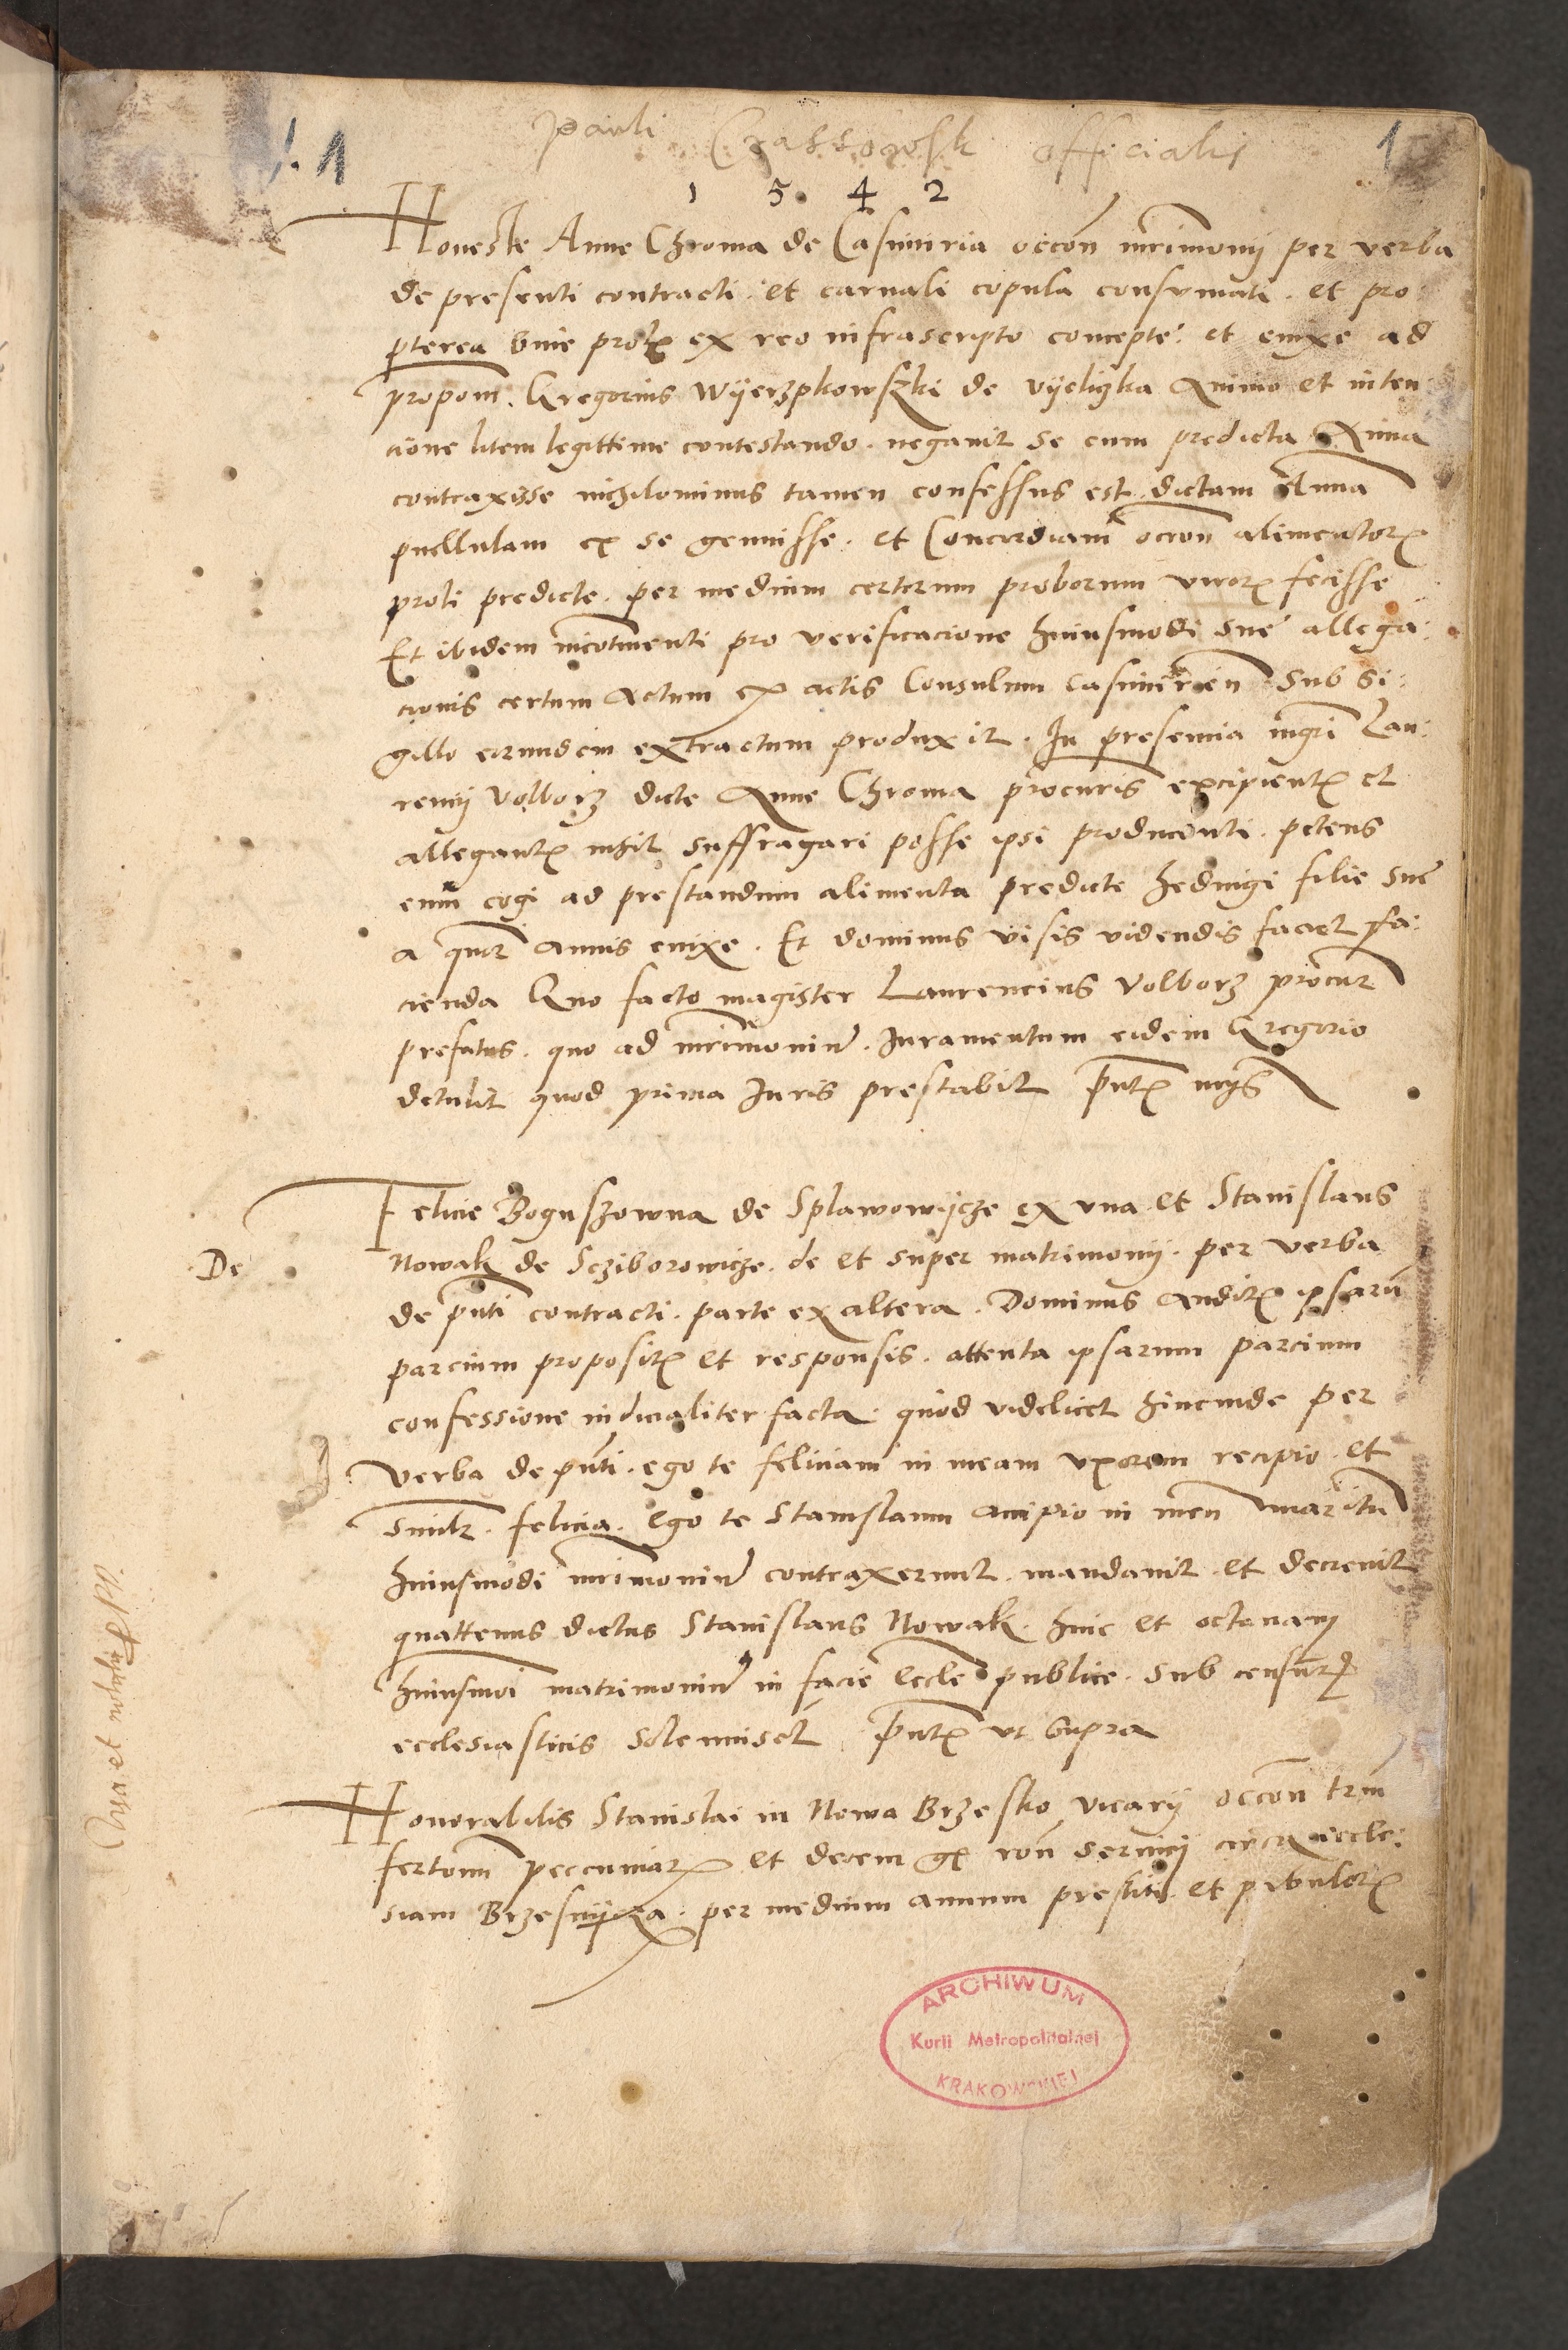 Pauli Crassowsk officialis
1. 1
1
1 5 4 2
Honeste Anne Chroma de Casimiria occōn mr̄imonij per verba
de presenti contracti . et carnali copula consumati . et pro
pterea bine prolꝭ ex reo infrascripto concepte . et enixe ad
propom̄ . Gregorius Wyerzpkowszki de vyeliczka Animo et inten
cione litem legittime contestando . negavit se cum predicta Anna
contraxisse nichilominus tamen confessus est dictam Annā
puellulam ex se genuisse . et Concordiam occōn alimentorꝭ
proli predicte . per medium certorum proborum virorꝭ fecisse
Et ibidem incontinenti pro verificacione huiusmodi sue allega:
cionis certum Actum ex actis Consulum Casimirien̄ sub si:
gillo eorundem extractum produxit . In presencia mgr̄i Lau:
rencij Volborz dicte Anne Chroma procuris excipientꝭ et
allegantꝭ nihil suffragari posse ipsi producenti . petens
eum cogi ad prestandum alimenta predicte hedvigi filie sue
a quor̄ annis enixe . Et dominus visis videndis faciet fa:
cienda Quo facto magister Laurencius Volborz procur̄
prefatus . quo ad mr̄imoniū . Iuramentum eidem Gregorio
detulit quod prima Iuris prestabit pn̄tꝭ
Felicie Boguszowna de Splawowycze ex vna et Stanislaus
De
Nowak de Scziborowicze . de et super matrimonij . per verba
de pn̄ti contracti . parte ex altera . Dominus auditꝭ ipsarū
parcium propositꝭ et responsis . attenta ipsarum parcium
confessione iudicialiter facta . quod videlicet hincinde per
verba de pn̄ti . ego te feliciam in meam vxorem recipio . et
similr̄ . felicia . Ego te Stanislaum accipio in meū maritū
huiusmodi mr̄imoniū contraxerunt . mandavit et decrevit
quattenus dictus Stanislaus Nowak . hinc et octavam
huiusmōi matrimoniū in facie eccl̄e publice . sub censurꝭ
ecclesiasticis solemniset pn̄tꝭ vt supra
Honorabilis Stanislai in Nowa Brzesko vicarij occōn triū
fertonū peccuniarꝭ et decem gꝭ rōn̄ servicij circa eccle:
siam Brzesnycza . per medium annum prestiti . et pabulorꝭ
ARCHIWUM
Kurii Metropolitalnej
KRAKOWSKIEJ